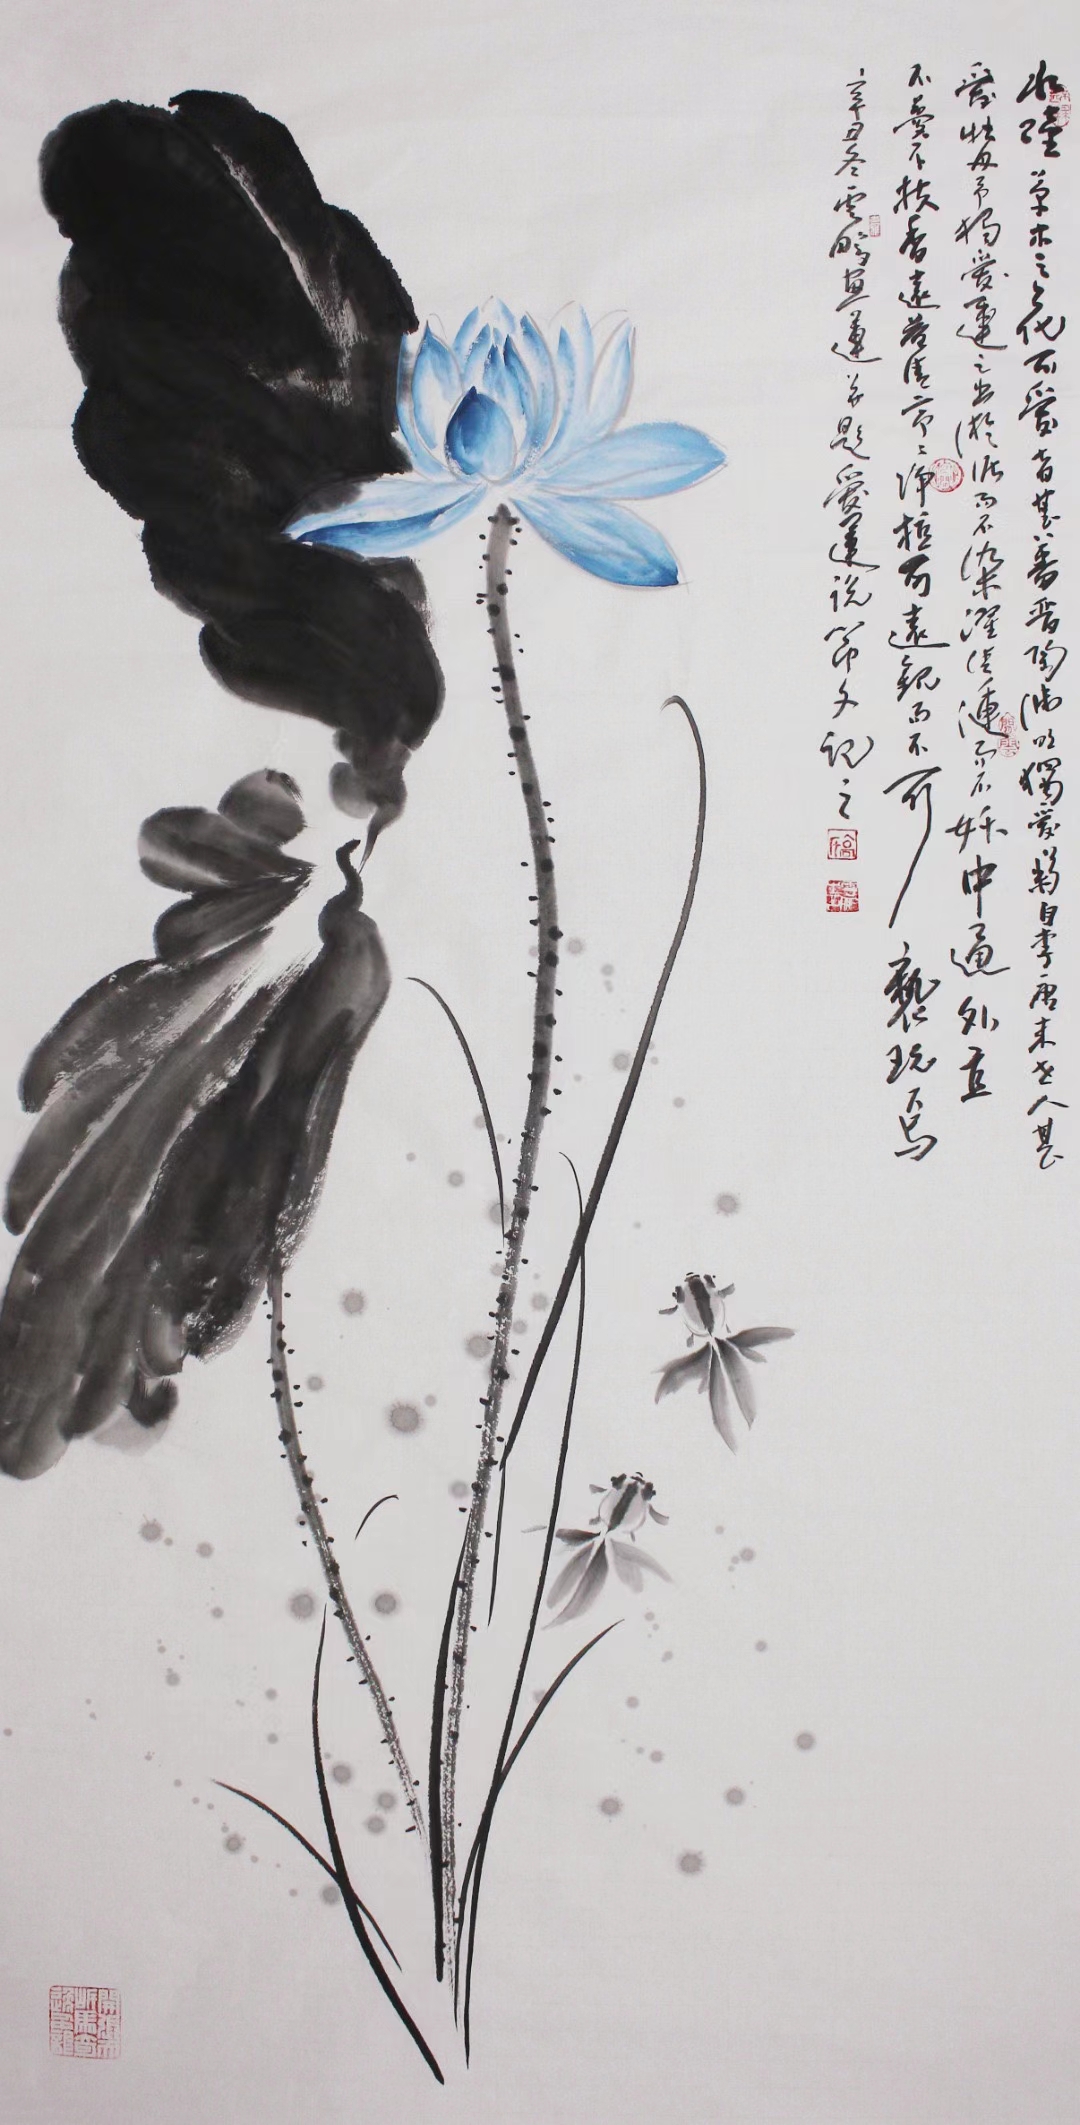 水陸草木之花可愛者甚蕃晋陶渊明獨愛菊自李唐来世人甚
愛牡丹予獨愛蓮之出淤泥而不染濯清漣而不妖中通外直
不蔓不枝香遠益清亭〻净植可遠觀而不可褻玩焉
辛丑冬雲鵬畫蓮並題愛蓮说節文記之